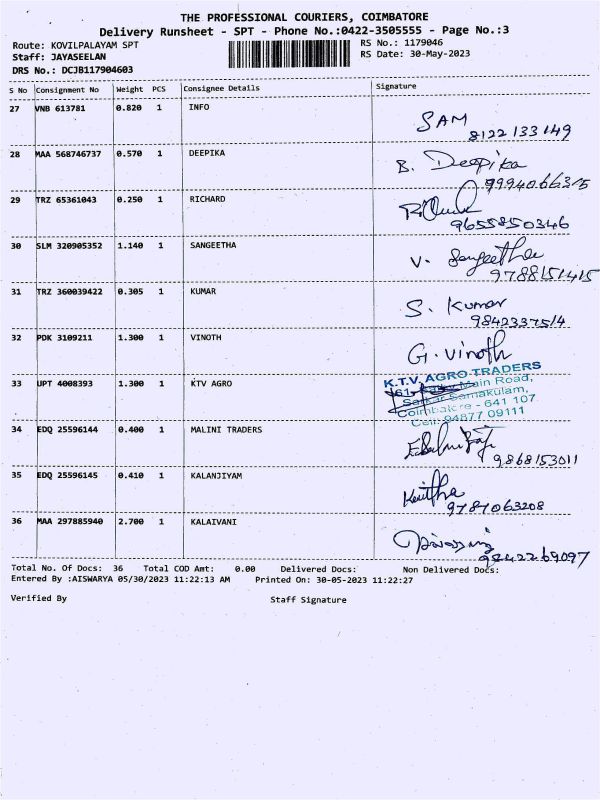 THE PROFESSIONAL COURIERS, COIMBATORE
Delivery Runsheet - SPT - Phone No.:0422-3505555 - Page No.:3
Route: KOVILPALAYAM SPT RS No.: 1179046
Staff: JAYASEELAN RS Date: 30-May-2023
DRS No.: DCJB117904603
S No Consignment No Weight PCS Consignee Details Signature
27 VNB 613781 0.820 1 INFO SAM
8122 133 149
28 MAA 568746737 0.570 1 DEEPIKA B. Deepika
9994066315
29 TRZ 65361043 0.250 1 RICHARD
9655850346
30 SLM 320905352 1.140 1 SANGEETHA V. Sangeetha
9788151415
31 TRZ 360039422 0.305 1 KUMAR S. Kumar
9842337514
32 PDK 3109211 1.300 1 VINOTH G. Vinoth
33 UPT 4008393 1.300 1 KTV AGRO K.T.V. AGRO TRADERS
Main Road,
Sarkar Samakulam,
Coimbatore - 641 107
Cell: 94877 09111
34 EDQ 25596144 0.400 1 MALINI TRADERS
9868153011
35 EDQ 25596145 0.410 1 KALANJIYAM
9787063208
36 MAA 297885940 2.700 1 KALAIVANI
9842269097
Total No. Of Docs: 36 Total COD Amt: 0.00 Delivered Docs: Non Delivered Docs:
Entered By :AISWARYA 05/30/2023 11:22:13 AM Printed On: 30-05-2023 11:22:27
Verified By Staff Signature